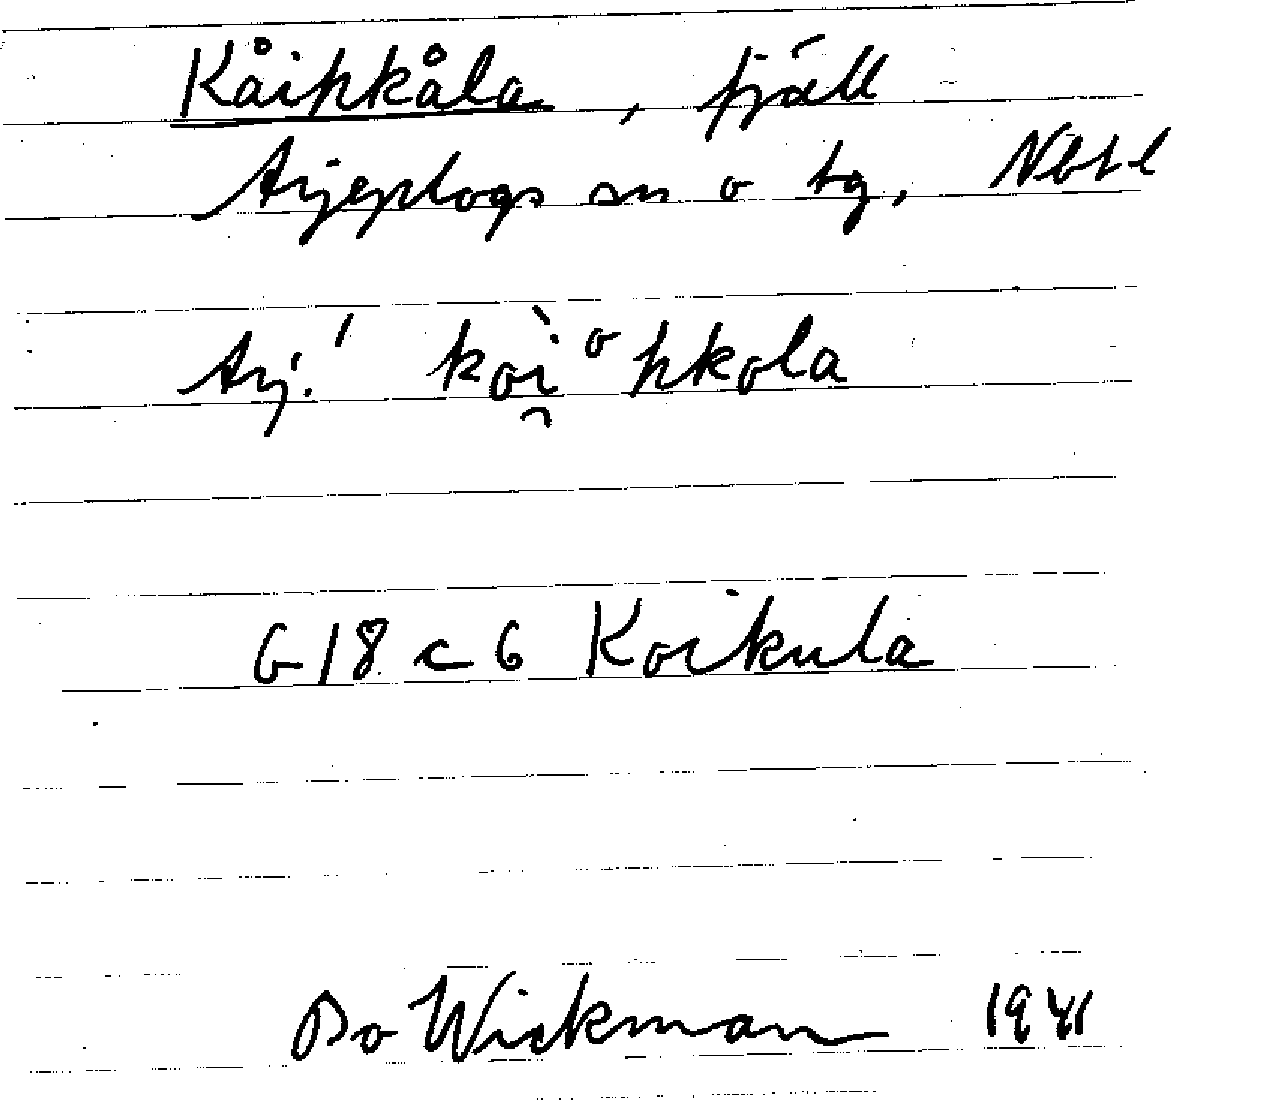 Kåipkåla, fjäll
Arjeplogs sn o tg, Nbtl
Arj. ' koì̯ ᵒpkola
G 18 c 6 Koikula
Bo Wickman 1941